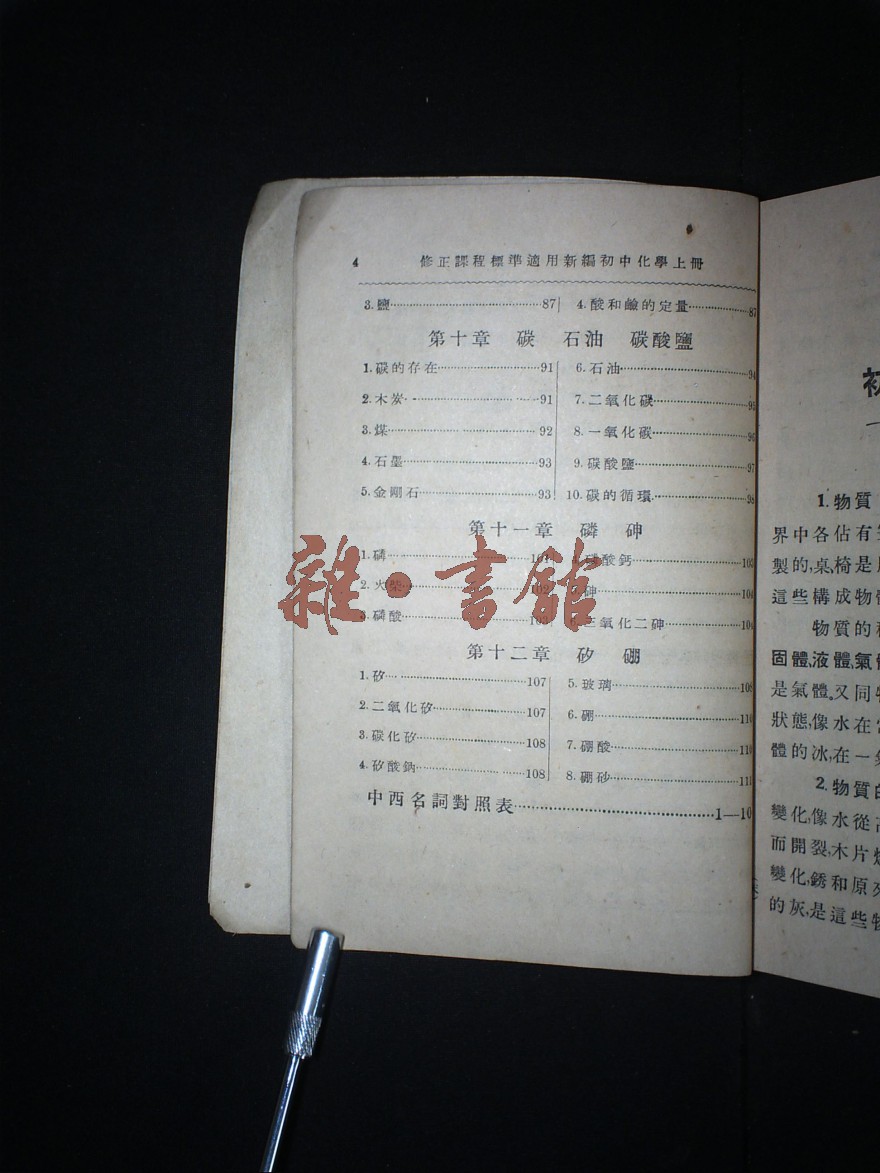 4 修正課程標準適用新編初中化學上冊
3. 鹽 87 4. 酸和鹼的定量 87
第十章 碳 石油 碳酸鹽
1. 碳的存在 91 6. 石油 94
2. 木炭 91 7. 二氧化碳 95
3. 煤 92 8. 一氧化碳 96
4. 石墨 93 9. 碳酸鹽 97
5. 金剛石 93 10. 碳的循環 98
第十一章 磷 砷
1. 磷 101 磷酸鈣 103
2. 火柴 102 砷 104
3. 磷酸 三氧化二砷 104
第十二章 矽 硼
1. 矽 107 5. 玻璃 108
2. 二氧化矽 107 6. 硼 110
3. 碳化矽 108 7. 硼酸 110
4. 矽酸鈉 108 8. 硼砂 111
中西名詞對照表 1—10
雜·書館
初
1. 物質
界中各佔有
製的,桌椅是
這些構成物體
物質的
固體,液體,氣體
是氣體。又同
狀態,像水在
體的冰,在一
2. 物質的
變化,像水從
而開裂,木片
變化,銹和原
的灰,是這些物